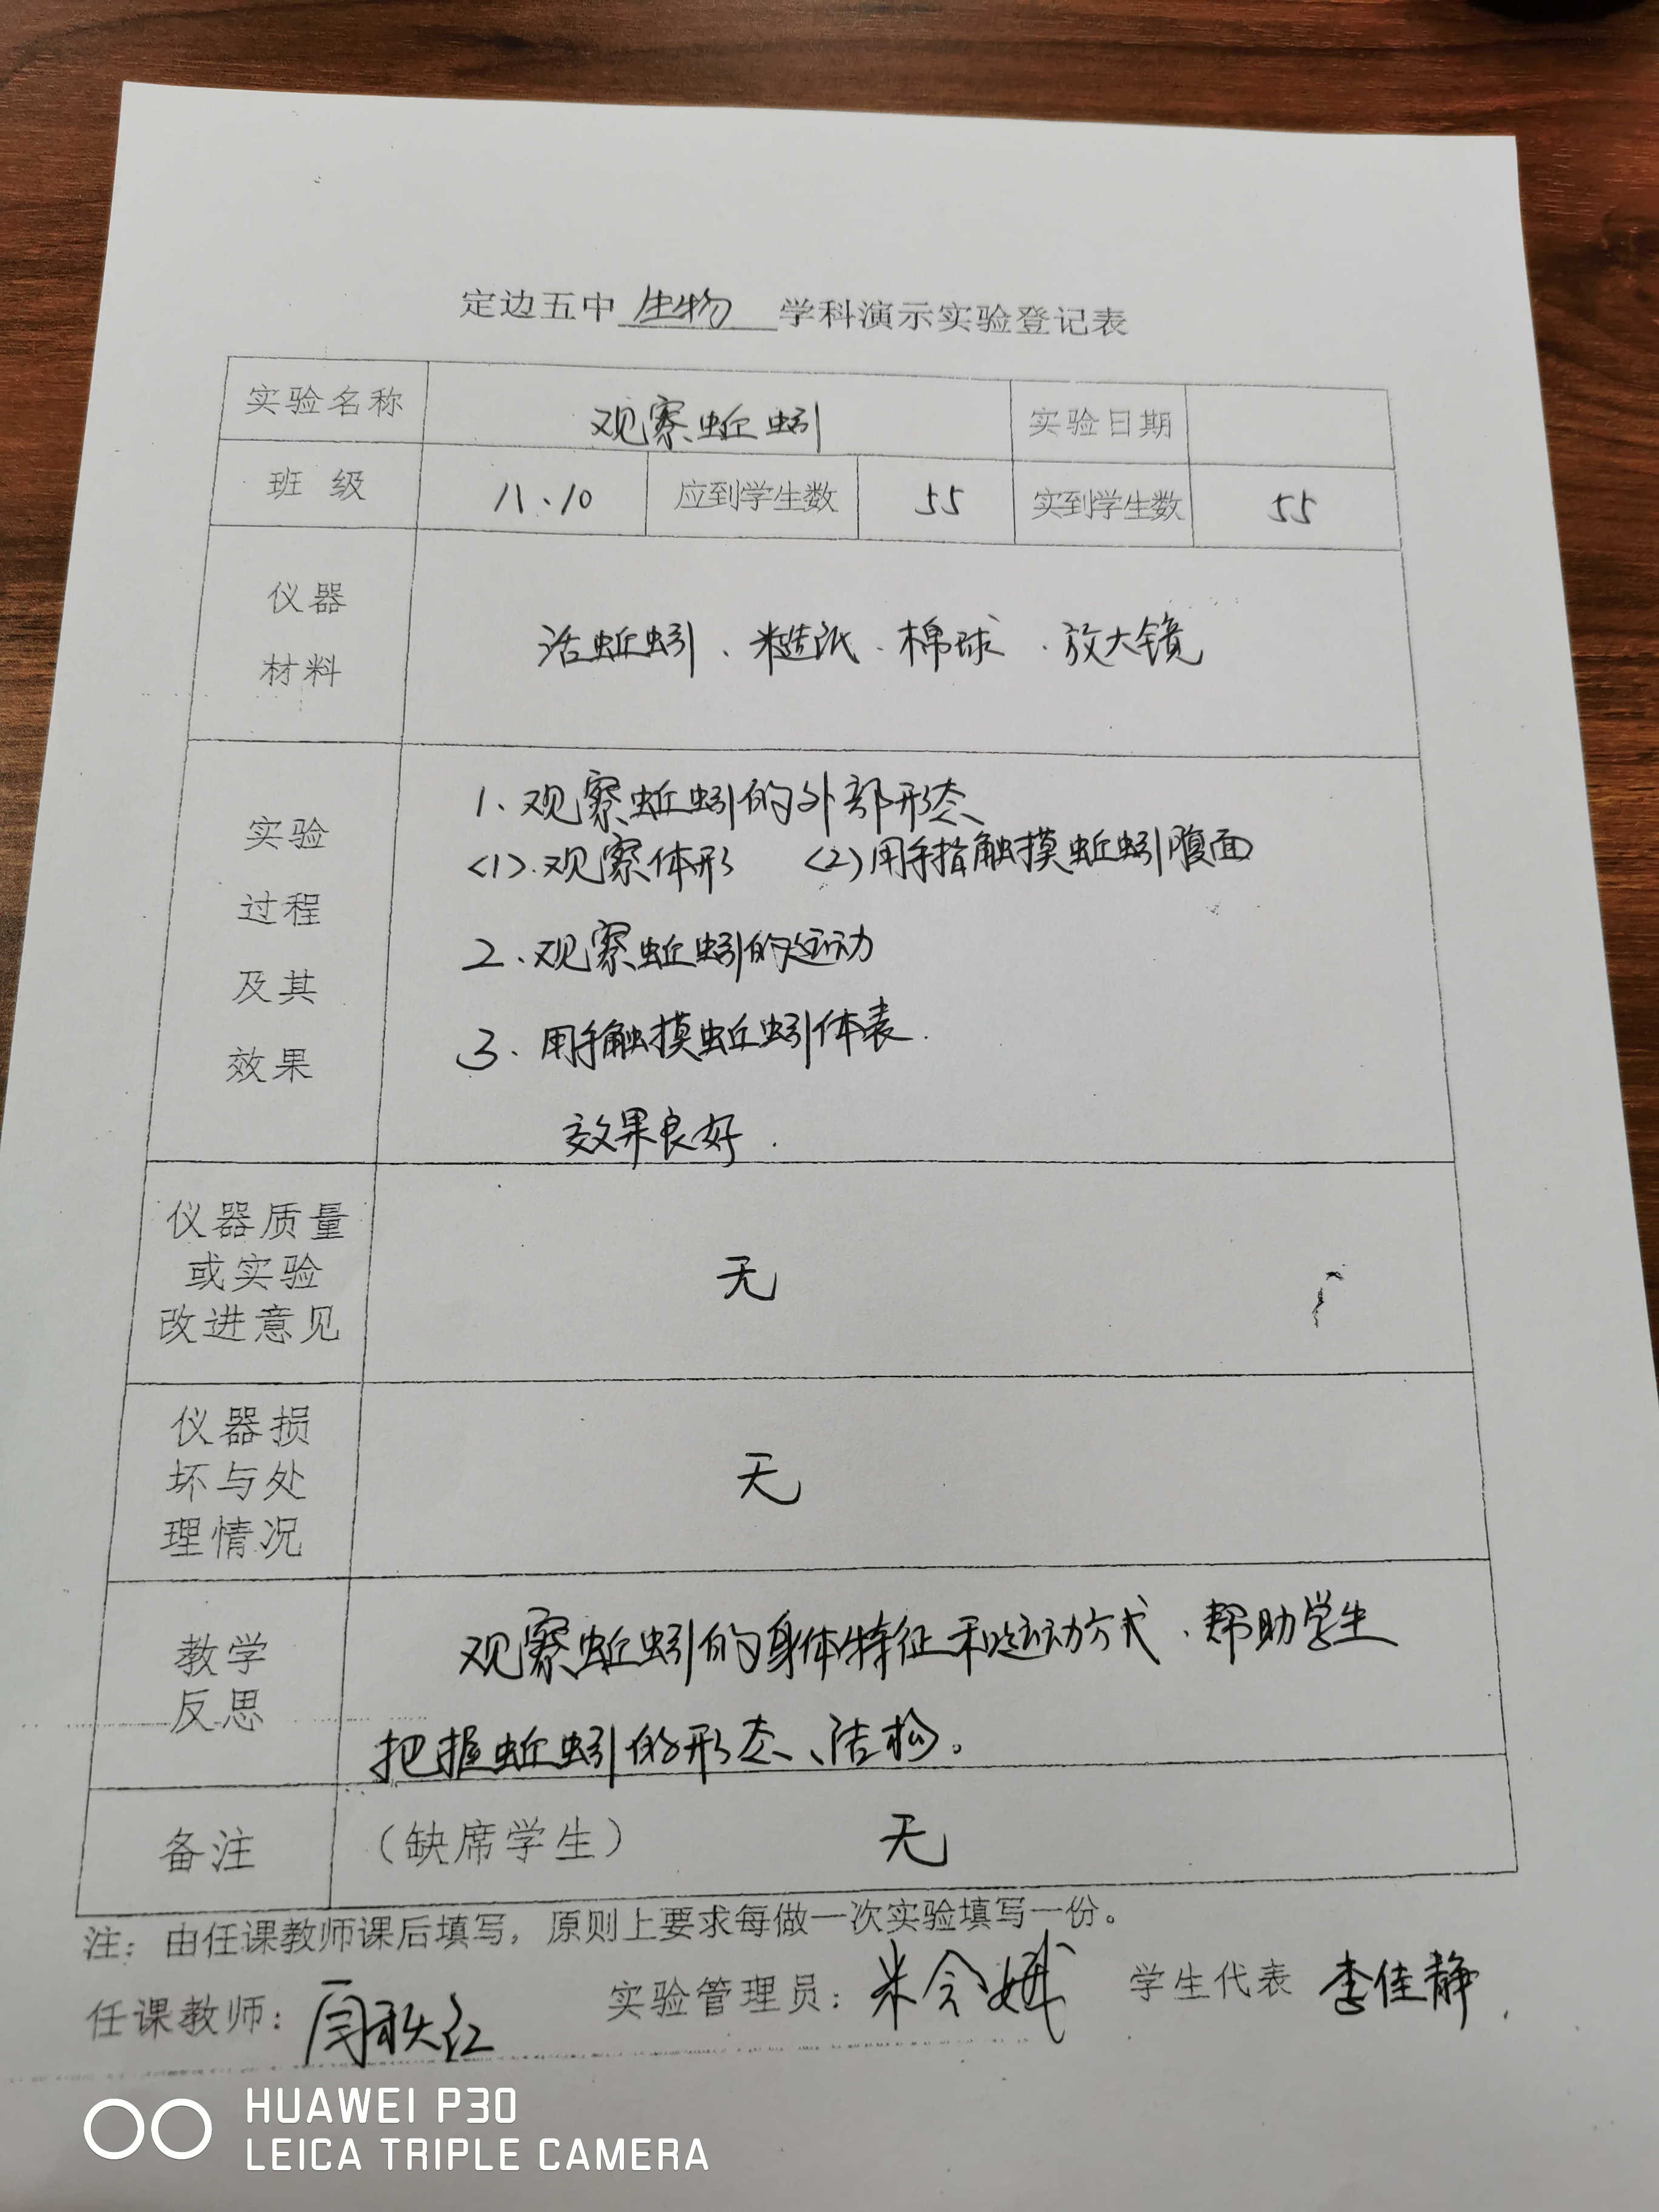 定边五中 生物 学科演示实验登记表
实验名称 观察蚯蚓 实验日期
班 级 八.10 应到学生数 55 实到学生数 55
仪器
材料
活蚯蚓、糙纸、棉球、放大镜
实验
过程
及其
效果
1、观察蚯蚓的外部形态
<1>.观察体形 <2>用手指触摸蚯蚓腹面
2、观察蚯蚓的运动
3、用手触摸蚯蚓体表.
效果良好.
仪器质量
或实验
改进意见
无
仪器损
坏与处
理情况
无
教学
反思
观察蚯蚓的身体特征和运动方式、帮助学生
把握蚯蚓的形态、结构。
备注 （缺席学生） 无
注：由任课教师课后填写，原则上要求每做一次实验填写一份。
任课教师： 实验管理员： 学生代表 李佳静
HUAWEI P30
LEICA TRIPLE CAMERA